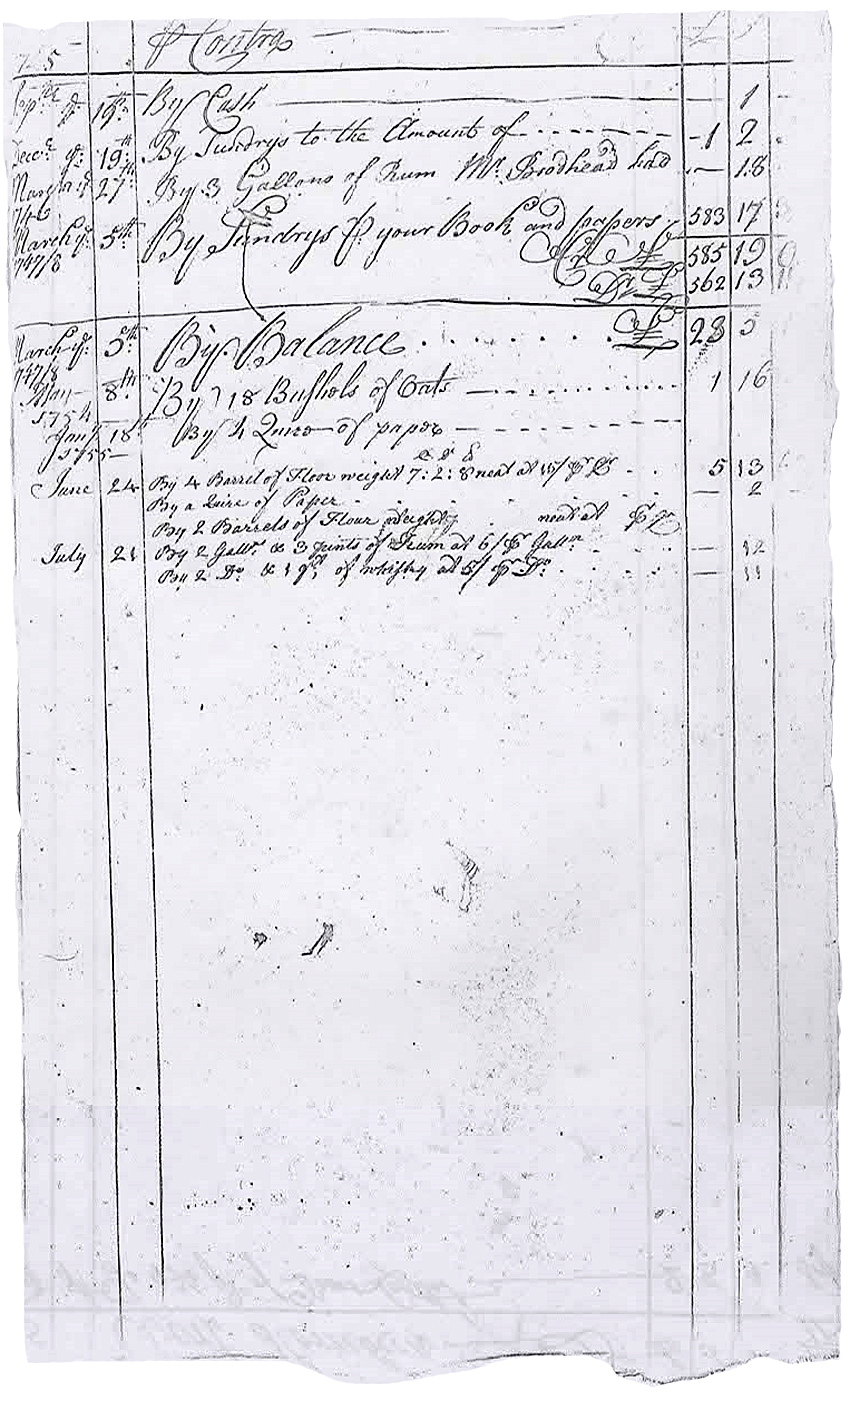 P Contra £
Sepr ye 19th By Cash 1
Decr ye 19th By Sundrys to the Amount of 1 2
March ye 27th By 3 Gallons of Rum Mr. Brodhead had — 18
746
March ye 5th By Sundrys P your Book and papers 583 17
747/8 Cr £ 585 19
Dr £ 562 13
March ye 5th By Balance £ 23 5
747/8
May 8th By 18 Bushels of Oats 1 16
1754
Jany 18th By 4 Quire of paper
1755
C Q lb
June 24 By 4 Barrel of Floor weight 7:2:8 neat at 15/ P C 5 13
By a Quire of Paper — 2
By 2 Barrels of Flour weighty neat at P C
July 21 By 2 Galls. & 3 pints of Rum at 6/ P Galln — 12
By 2 Do & 1 qt of whisky at 5/ P Do — 11